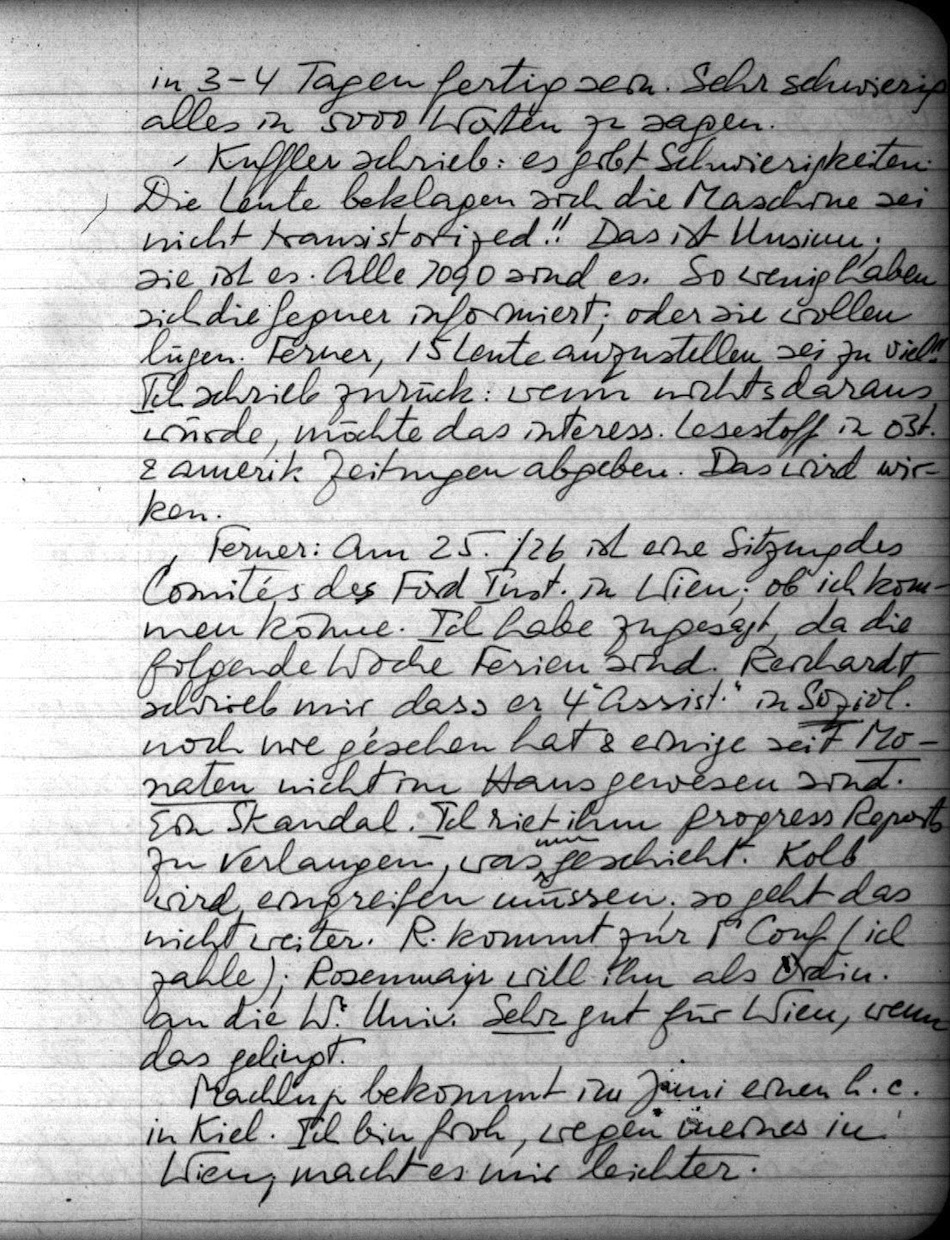 in 3-4 Tagen fertig sein. Sehr schwierig
alles in 5000 Worten zu sagen.
Kuffler schrieb: es gibt Schwierigkeiten.
Die Leute beklagen sich die Maschine sei
nicht transistorized!! Das ist Unsinn;
sie ist es. Alle 7090 sind es. So wenig haben
sich die Gegner informiert; oder sie wollen
lügen. Ferner, 15 Leute anzustellen sei zu viel!!
Ich schrieb zurück: wenn nichts daraus
würde, möchte das interess. Lesestoff in öst.
& amerik Zeitungen abgeben. Das wird wir-
ken.
Ferner: Am 25./26 ist eine Sitzung des
Comités des Ford Inst. in Wien; ob ich kom-
men könne. Ich habe zugesagt, da die
folgende Woche Ferien sind. Reichardt
schrieb mir dass er 4 "Assist." in Soziol.
noch nie gesehen hat & einige seit Mo-
naten nicht im Haus gewesen sind.
Ein Skandal. Ich riet ihm progress Reports
zu verlangen, was nun geschieht. Kolb
wird eingreifen müssen; so geht das
nicht weiter. R. kommt zur P Conf (ich
zahle); Rosenmayr will ihn als Ordin.
an die W. Univ. Sehr gut für Wien, wenn
das gelingt.
Machlup bekommt im Juni einen h.c.
in Kiel. Ich bin froh, wegen meines in
Wien, macht es mir leichter.